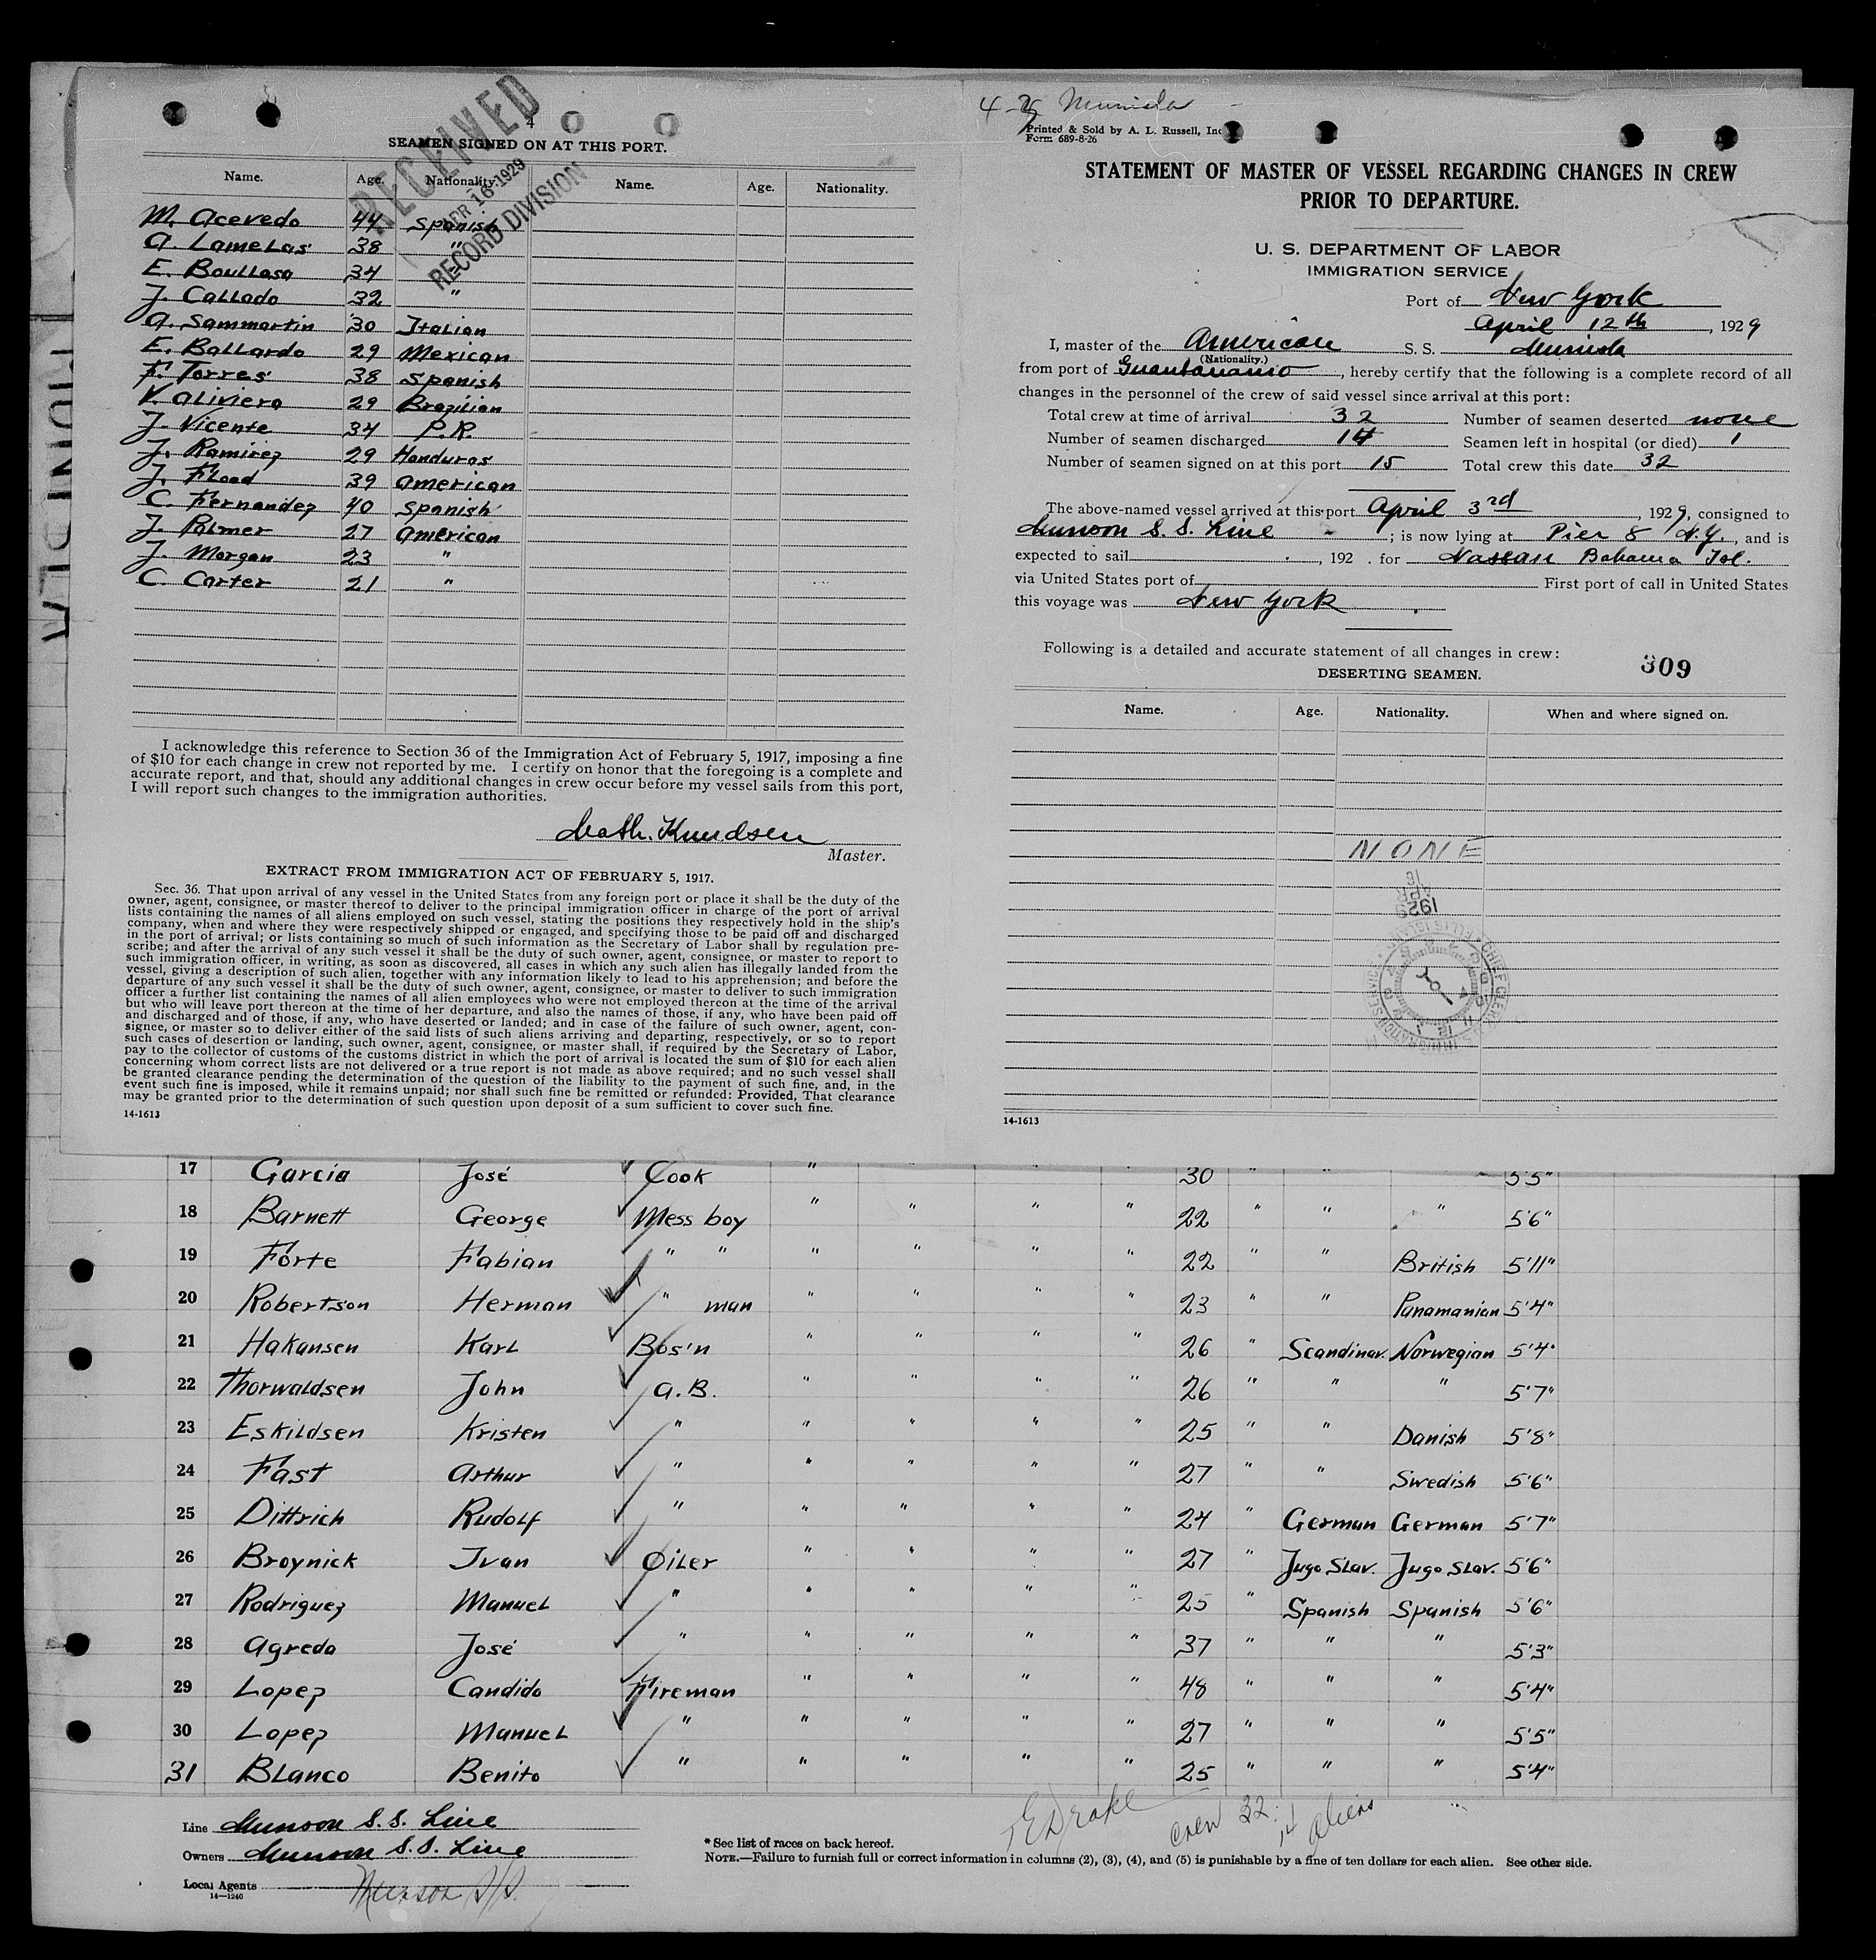 4
SEAMEN SIGNED ON AT THIS PORT.
RECEIVED
APR 16 1929
RECORD DIVISION
Name. Age. Nationality. Name. Age. Nationality.
M. Acevedo 44 Spanish
A. Lamelas 38 "
E. Boullosa 34 "
J. Callado 32 "
A. Sammartin 30 Italian
E. Ballardo 29 Mexican
F. Torres 38 Spanish
V. Aliviero 29 Brazilian
J. Vicente 34 P.R.
J. Ramirez 29 Honduras
J. Flood 39 American
C. Fernandez 40 Spanish
J. Palmer 27 American
J. Morgan 23 "
C. Carter 21 "
I acknowledge this reference to Section 36 of the Immigration Act of February 5, 1917, imposing a fine
of $10 for each change in crew not reported by me. I certify on honor that the foregoing is a complete and
accurate report, and that, should any additional changes in crew occur before my vessel sails from this port,
I will report such changes to the immigration authorities.
Math. Knudsen
Master.
EXTRACT FROM IMMIGRATION ACT OF FEBRUARY 5, 1917.
Sec. 36. That upon arrival of any vessel in the United States from any foreign port or place it shall be the duty of the
owner, agent, consignee, or master thereof to deliver to the principal immigration officer in charge of the port of arrival
lists containing the names of all aliens employed on such vessel, stating the positions they respectively hold in the ship's
company, when and where they were respectively shipped or engaged, and specifying those to be paid off and discharged
in the port of arrival; or lists containing so much of such information as the Secretary of Labor shall by regulation pre-
scribe; and after the arrival of any such vessel it shall be the duty of such owner, agent, consignee, or master to report to
such immigration officer, in writing, as soon as discovered, all cases in which any such alien has illegally landed from the
vessel, giving a description of such alien, together with any information likely to lead to his apprehension; and before the
departure of any such vessel it shall be the duty of such owner, agent, consignee, or master to deliver to such immigration
officer a further list containing the names of all alien employees who were not employed thereon at the time of the arrival
but who will leave port thereon at the time of her departure, and also the names of those, if any, who have been paid off
and discharged and of those, if any, who have deserted or landed; and in case of the failure of such owner, agent, con-
signee, or master so to deliver either of the said lists of such aliens arriving and departing, respectively, or so to report
such cases of desertion or landing, such owner, agent, consignee, or master shall, if required by the Secretary of Labor,
pay to the collector of customs of the customs district in which the port of arrival is located the sum of $10 for each alien
concerning whom correct lists are not delivered or a true report is not made as above required; and no such vessel shall
be granted clearance pending the determination of the question of the liability to the payment of such fine, and, in the
event such fine is imposed, while it remains unpaid; nor shall such fine be remitted or refunded: Provided, That clearance
may be granted prior to the determination of such question upon deposit of a sum sufficient to cover such fine.
14-1613
Munisla
Printed & Sold by A. L. Russell, Inc
Form 689-8-26
STATEMENT OF MASTER OF VESSEL REGARDING CHANGES IN CREW
PRIOR TO DEPARTURE.
U. S. DEPARTMENT OF LABOR
IMMIGRATION SERVICE
Port of New York
April 12th, 1929
I, master of the American S. S. Munisla
(Nationality.)
from port of Guantanamo, hereby certify that the following is a complete record of all
changes in the personnel of the crew of said vessel since arrival at this port:
Total crew at time of arrival 32 Number of seamen deserted none
Number of seamen discharged 14 Seamen left in hospital (or died) 1
Number of seamen signed on at this port 15 Total crew this date 32
The above-named vessel arrived at this port April 3rd, 1929, consigned to
Munson S. S. Line; is now lying at Pier 8 N.Y., and is
expected to sail , 192 . for Nassau Bahama Isl.
via United States port of First port of call in United States
this voyage was New York
Following is a detailed and accurate statement of all changes in crew:
309
DESERTING SEAMEN.
Name. Age. Nationality. When and where signed on.
NONE
APR 16 1929
14-1613
17 Garcia José Cook " " " " 30 " " 5'5"
18 Barnett George Mess boy " " " " 22 " " " 5'6"
19 Forte Fabian " " " " " " 22 " " British 5'11"
20 Robertson Herman " man " " " " 23 " " Panamanian 5'4"
21 Hakansen Karl Bos'n " " " " 26 " Scandinav. Norwegian 5'4"
22 Thorwaldsen John A.B. " " " " 26 " " " 5'7"
23 Eskildsen Kristen " " " " " 25 " " Danish 5'8"
24 Fast Arthur " " " " " 27 " " Swedish 5'6"
25 Dittrich Rudolf " " " " " 24 " German German 5'7"
26 Broynick Ivan Oiler " " " " 27 " Jugo Slav. Jugo Slav. 5'6"
27 Rodriguez Manuel " " " " " 25 " Spanish Spanish 5'6"
28 Agredo José " " " " " 37 " " " 5'3"
29 Lopez Candido Fireman " " " " 48 " " " 5'4"
30 Lopez Manuel " " " " " 27 " " " 5'5"
31 Blanco Benito " " " " " 25 " " " 5'4"
Line Munson S.S. Line
Owners Munson S.S. Line
Local Agents Munson S/S.
14—1240
* See list of races on back hereof.
EDrake
crew 32: 14 aliens
NOTE.—Failure to furnish full or correct information in columns (2), (3), (4), and (5) is punishable by a fine of ten dollars for each alien. See other side.